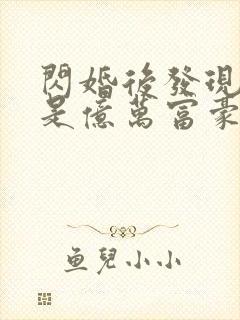 閃婚後發現
是億萬富豪
魚兒小小